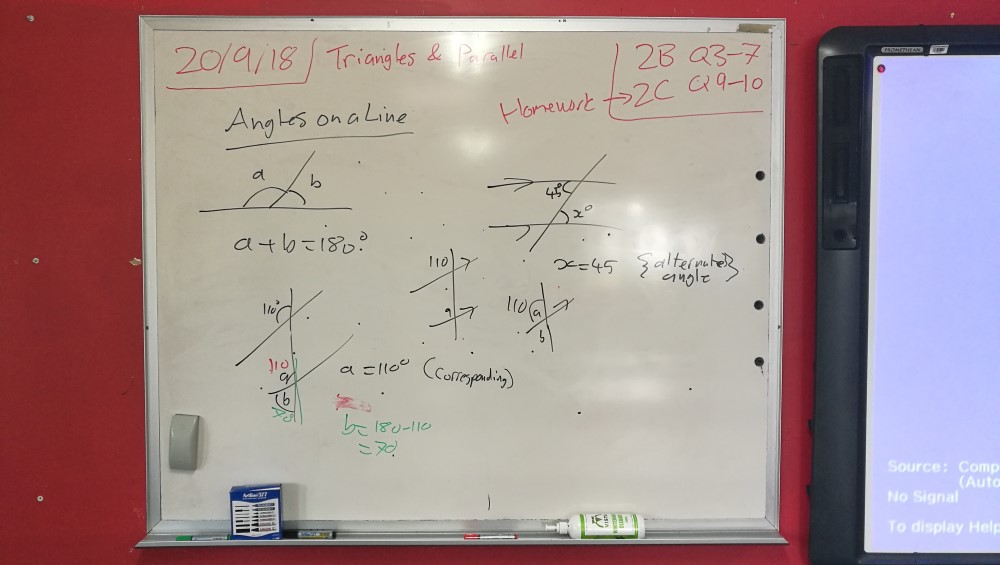 20/9/18
Triangles & Parallel
2B Q3-7
Homework → 2C Q9-10
Angles on a Line
a
b
a + b = 180°
45°
x°
x=45 {alternate}
angle
110
a
110
a
b
110°
110
a
b
70
a = 110° (Corresponding)
b= 180-110
= 70
PROMETHEAN
Artline 577
Source: Comp
(Auto
No Signal
To display Help